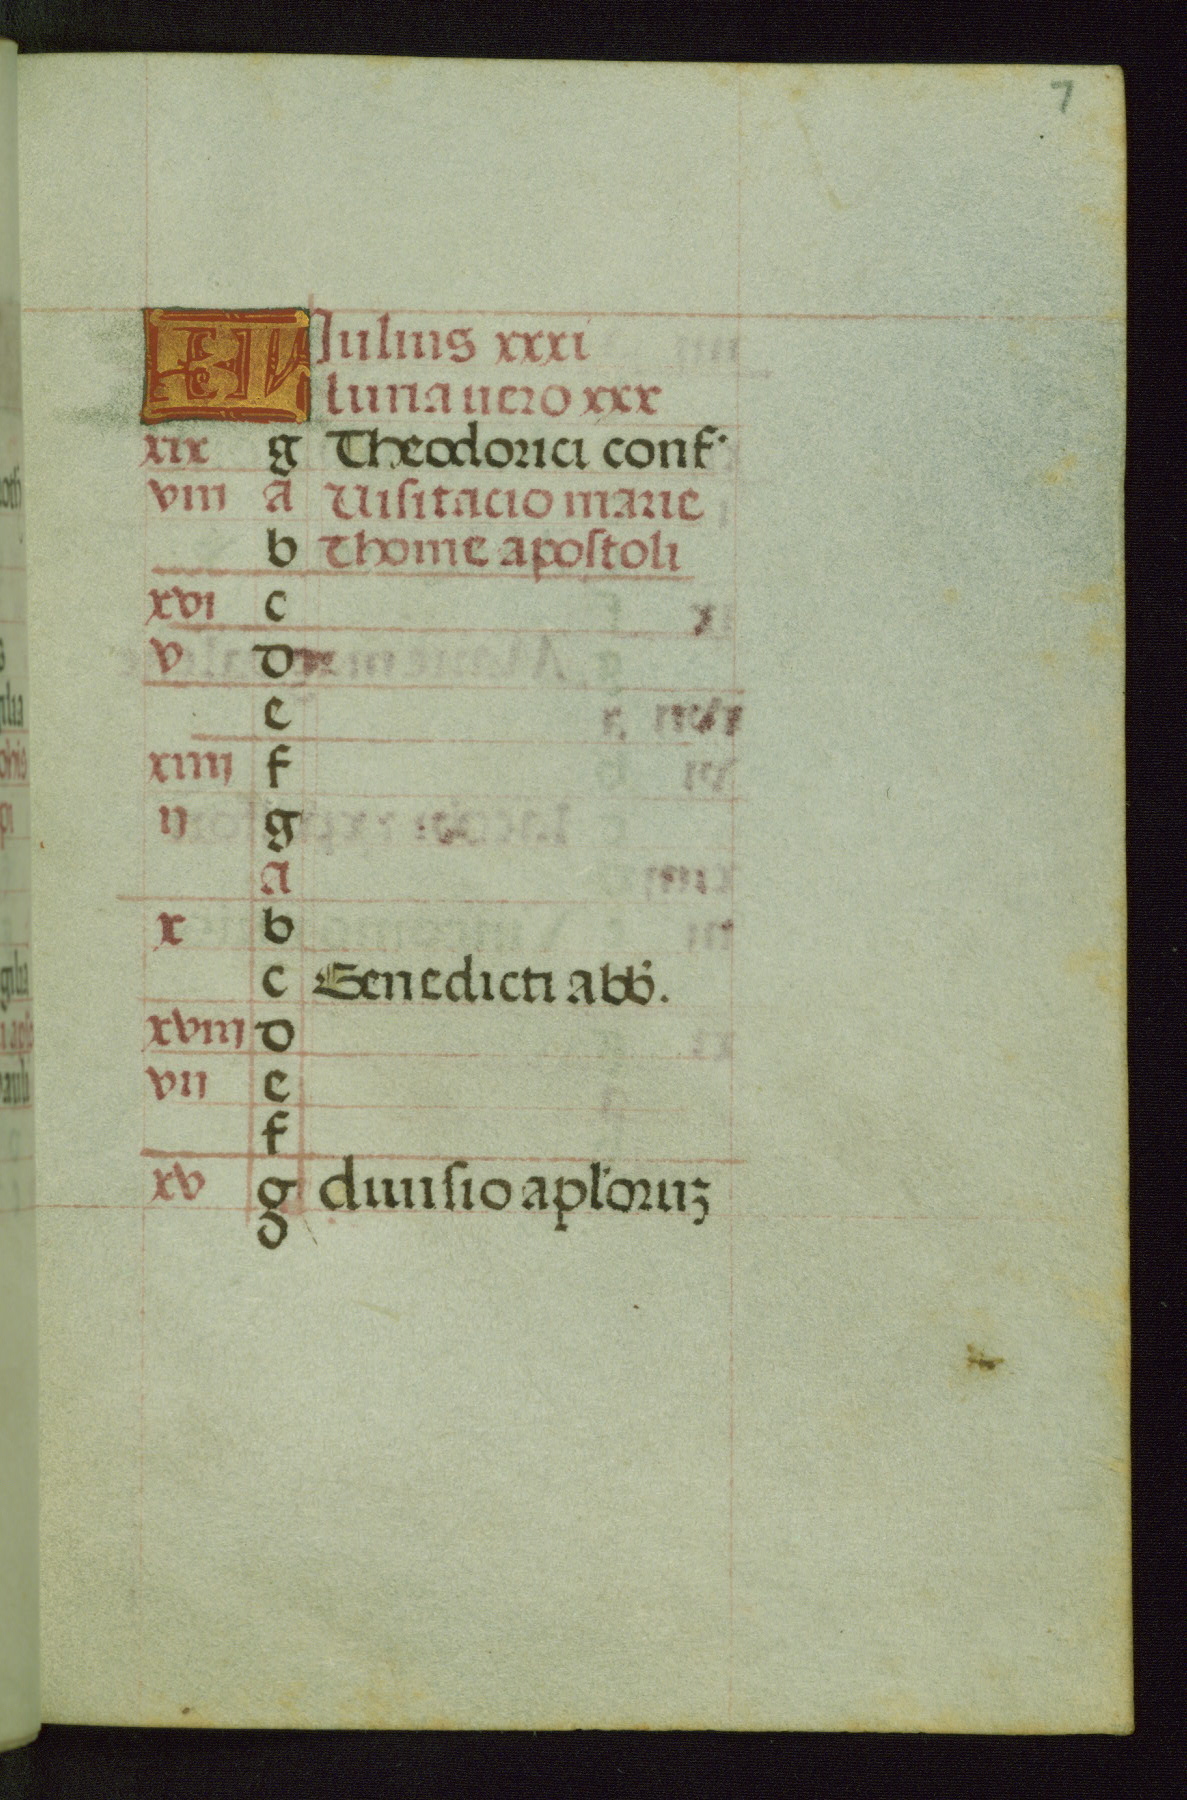 7
KL Julius xxxi
luna uero xxx
xix g Theodorici conf
viii a Uisitacio marie
b Thome apostoli
xvi c
v d
e
xiiii f
ii g
a
x b
c Benedicti abb.
xviii d
vii e
f
xv g diuisio apl'oruʒ